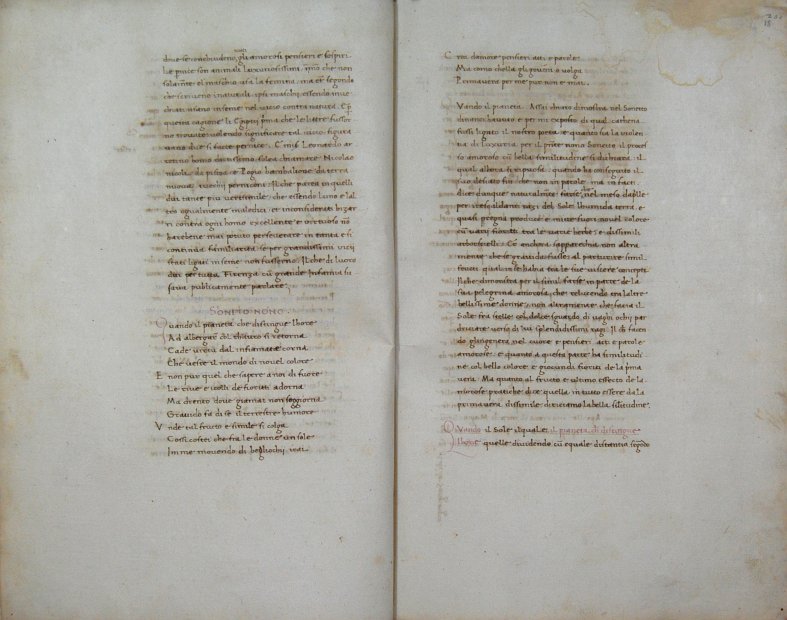 doue se conchiudeno, gli amorosi pensieri e sospiri.
Le pnice son animali luxuriosissimi, imo che non
solamte el maschio usa la femina, ma et segondo
che scriveno i naturali ipsi maschi, essendo inve
chiati usano inseme nel vicio contra natura. E p
questa cagione li Egiptij pma che le littre fusser
no trovate volendo significare tal vicio, figura
vano due si facte pernice. C mis Leonardo ar
retino homo dottissimo solea chiamare Nicolao
nicoli da pistoia e Pogio bambalione da terra
nuova vecchi perniconi; Il che parea in quelli
dui tanto piu verisimile, che essendo l uno e lal
tro egualmente maledici et inconsiderati bizar
ri contra ogni homo excellente e virtuoso no
harebene mai potuto perseverare in tanta e si
continua familiarita se per grandissimi vicij
stati ligati inseme non fusserno. Il che di luoro
dui per tutta Firenza cu grande Infamia su
soiva publicamente parlare.
SONETTO NONO.
Quando il pianeta che distingue lhore
Ad albergar col thauro si retorna
Cade virtu dal infiamate corna
Che veste il mondo di novel colore
E non pur quel che sapere anci di fuore
Le rive e i colli de fioriti adorna
Ma drento dove giamai non soggiorna
Gravido fa di se il terrestre humore
Vnde tal fructo e simile si colga
Cossi costei che fra le donne un sole
In me movendo di begliochi irai
C ria damore pensieri atti e parole
Ma como chella gli governi o volga
Primavera per me pur non e mai.
Vando il pianeta. Assai chiaro dimostra nel Sonetto
dinanci havuto e per mi exposto di qual cathena
fussi ligato il nostro poeta e quanto sia la violen
tia di Luxuria, per il pnte nono Sonetto il proces
so amoroso cu bella similitudine si dichiara. il
qual alhora si riposa, quando ha conseguito il
suo desiato fin che non in parole ma in facti.
dice dunque naturalmte farse nel mese daprile
per i resquldanti ragi del Sole l humida terra, e
quasi pregna produce e mice fuori novel colore
cu varij fioriti tra le varie herbe, e dissimili
arboscivelli; Ce anchora sapparechia non altra
mente che se gravida fusse; al parturire simil
fructi qual inse habia tra le sue viscere concepti.
Il che dimostra per il simil farse in parte de la
sua pelegrina amorosa, che relucendo tra laltre
bellissime donne; non altramente che facia il
Sole fra stelle col dolce sguardo di vaghi ochij par
driciate verso di lui splendidissimi ragi. Il che facen
do gli ingenera nel cuore e pensieri. atti e parole
amorose. e quanto a questa parte ha similitudi
ne col bello colore e giocundi fioriti de la pma
vera. Ma quanto al fructo e ultimo effecto de la
morose pratiche dice quella in tutto essere da la
primavera dissimile diriciamo la bella similitudine.
Quando il Sole il quale, il pianeta ch distingue
lhore quelle dividendo cu equale distantia segondo